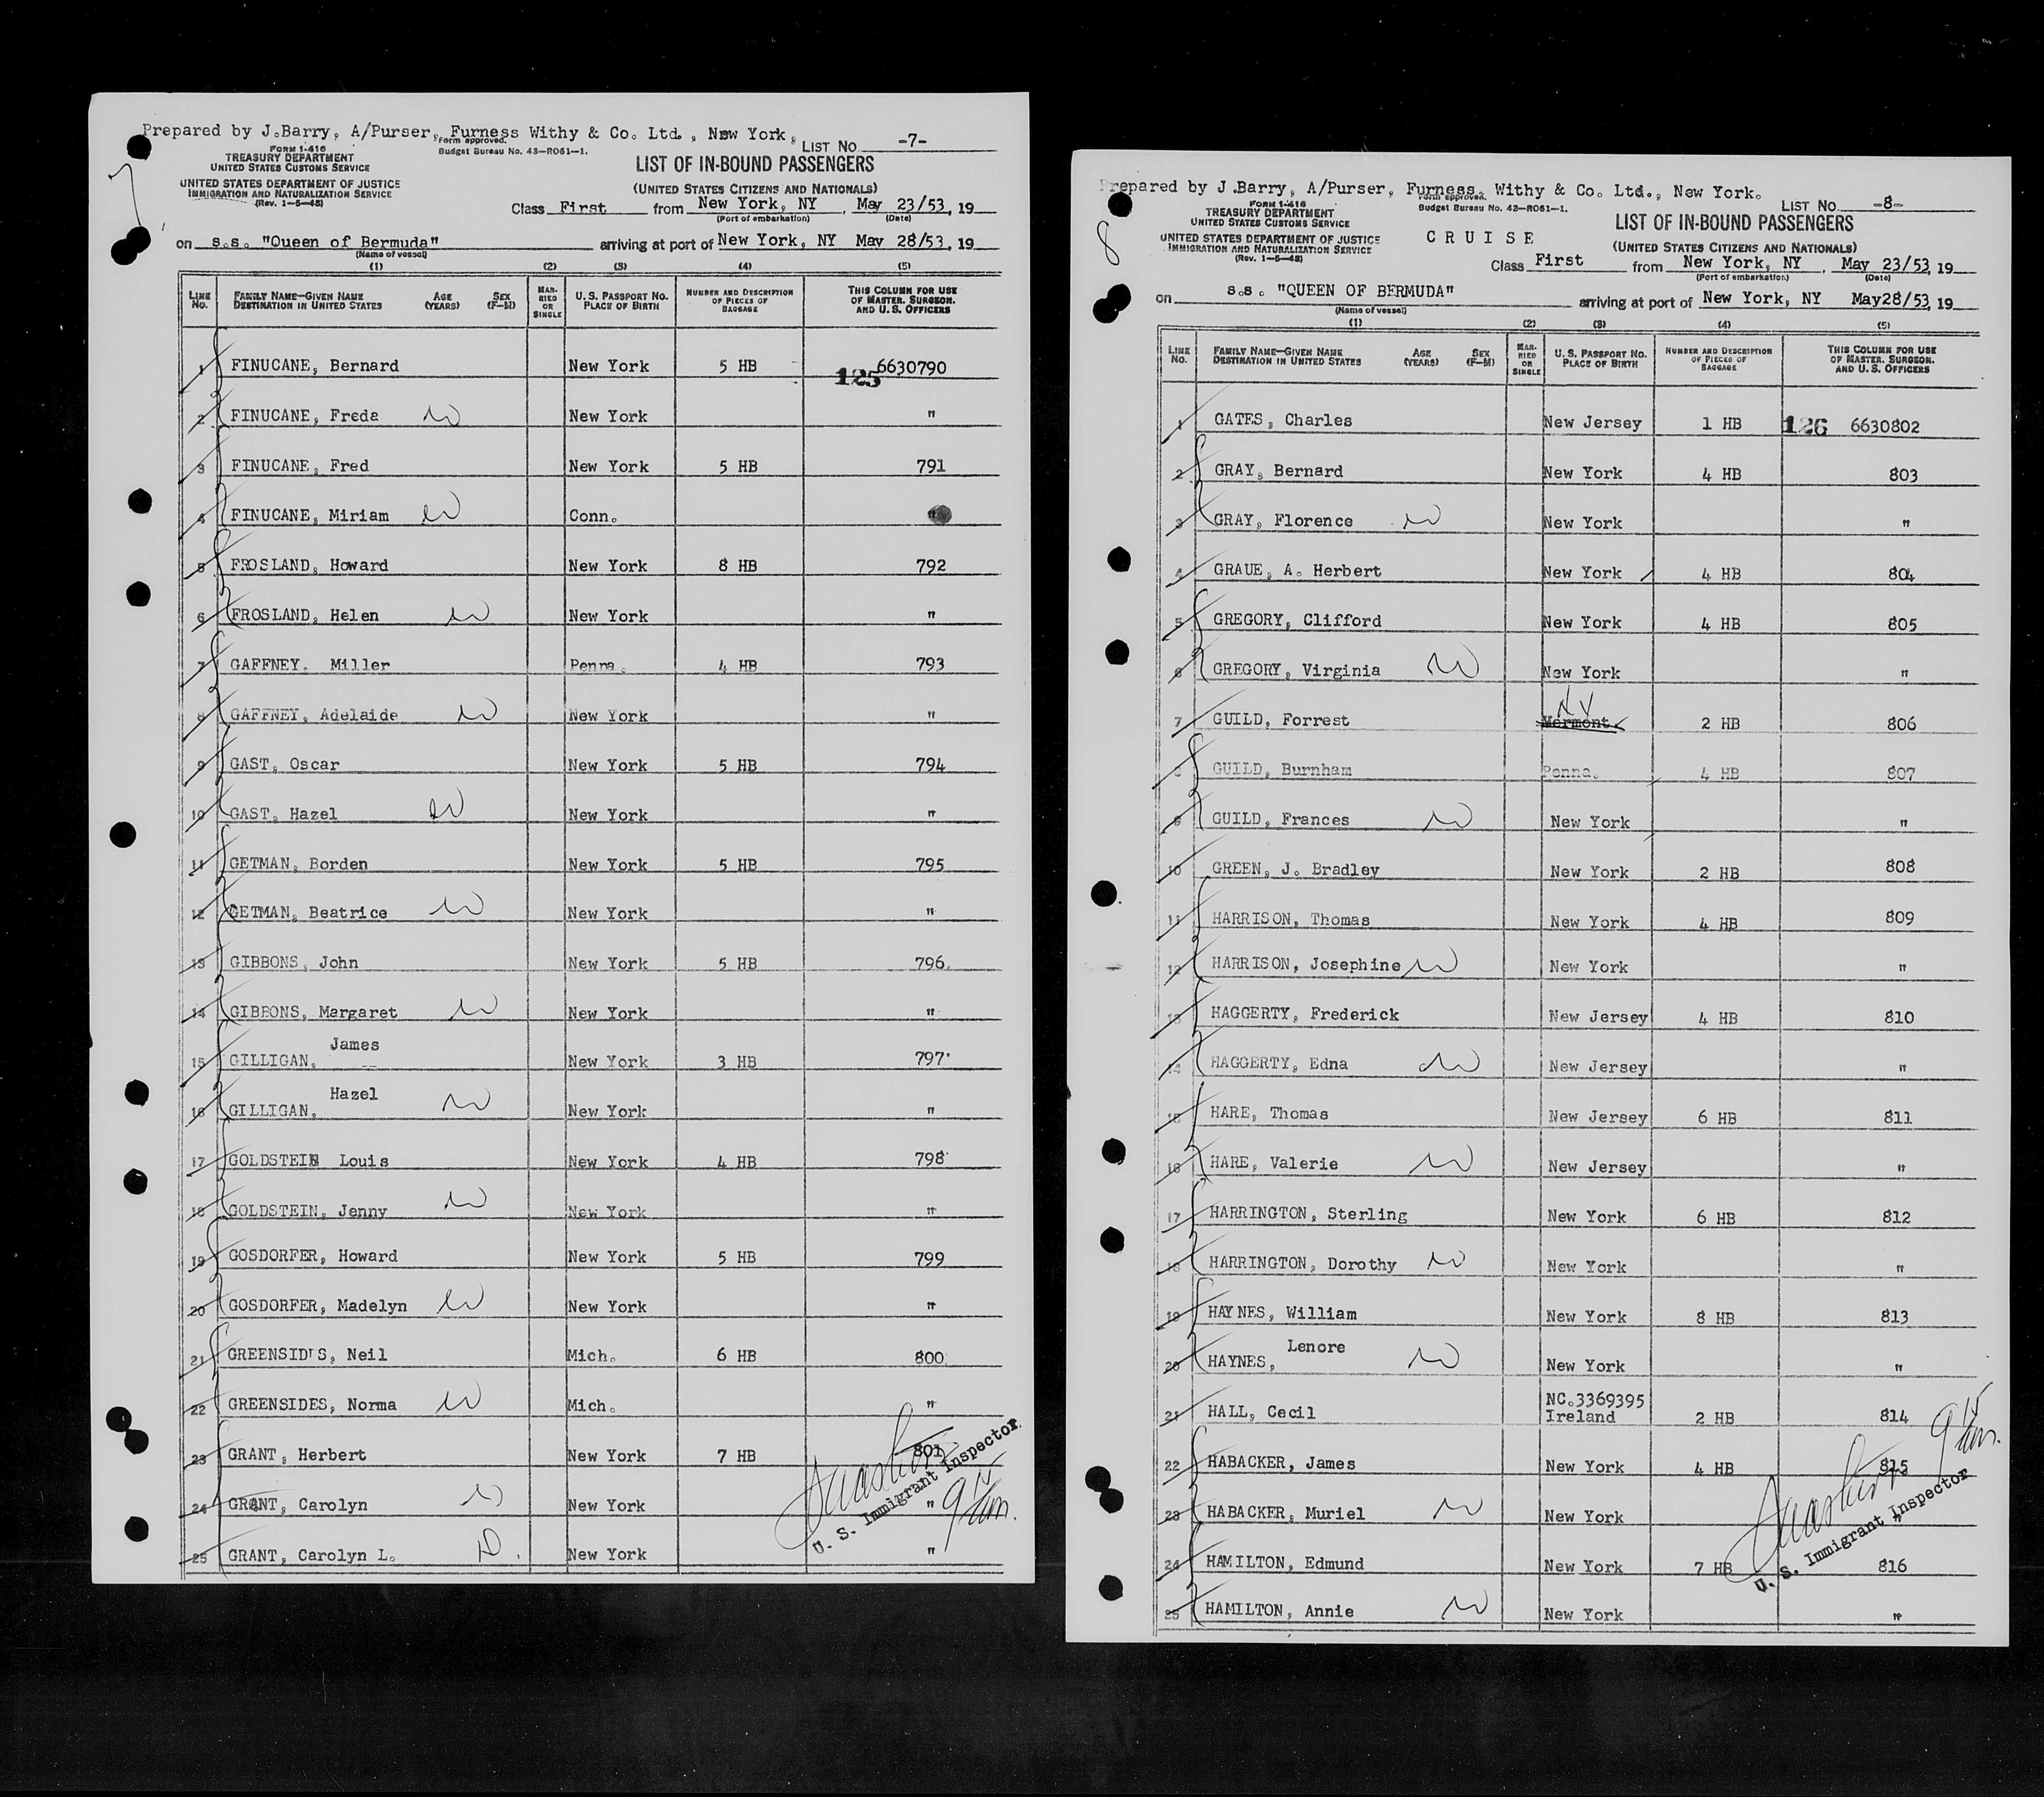 Prepared by J.Barry, A/Purser, Furness Withy & Co. Ltd., New York,
LIST No. -7-
7
FORM I-416
TREASURY DEPARTMENT
UNITED STATES CUSTOMS SERVICE
UNITED STATES DEPARTMENT OF JUSTICE
IMMIGRATION AND NATURALIZATION SERVICE
(Rev. 1-5-48)
Form approved.
Budget Bureau No. 43-R061-1.
LIST OF IN-BOUND PASSENGERS
(UNITED STATES CITIZENS AND NATIONALS)
Class First from New York, NY, May 23/53, 19
(Port of embarkation) (Date)
on s.s. "Queen of Bermuda" arriving at port of New York, NY May 28/53, 19
(Name of vessel)
(1) (2) (3) (4) (5)
LINE No. FAMILY NAME—GIVEN NAME DESTINATION IN UNITED STATES AGE (YEARS) SEX (F-M) MARRIED OR SINGLE U. S. PASSPORT No. PLACE OF BIRTH NUMBER AND DESCRIPTION OF PIECES OF BAGGAGE THIS COLUMN FOR USE OF MASTER, SURGEON, AND U. S. OFFICERS
1 FINUCANE, Bernard New York 5 HB 125 6630790
2 FINUCANE, Freda New York "
3 FINUCANE, Fred New York 5 HB 791
4 FINUCANE, Miriam Conn. "
5 FROSLAND, Howard New York 8 HB 792
6 FROSLAND, Helen New York "
7 GAFFNEY. Miller Penna. 4 HB 793
8 GAFFNEY, Adelaide New York "
9 GAST, Oscar New York 5 HB 794
10 GAST, Hazel New York "
11 GETMAN, Borden New York 5 HB 795
12 GETMAN, Beatrice New York "
13 GIBBONS, John New York 5 HB 796
14 GIBBONS, Margaret New York "
15 GILLIGAN, James New York 3 HB 797
16 GILLIGAN, Hazel New York "
17 GOLDSTEIN Louis New York 4 HB 798
18 GOLDSTEIN, Jenny New York "
19 GOSDORFER, Howard New York 5 HB 799
20 GOSDORFER, Madelyn New York "
21 GREENSIDES, Neil Mich. 6 HB 800
22 GREENSIDES, Norma Mich. "
23 GRANT, Herbert New York 7 HB 801
24 GRANT, Carolyn New York "
25 GRANT, Carolyn L. New York "
U. S. Immigrant Inspector.
Prepared by J.Barry, A/Purser, Furness, Withy & Co. Ltd., New York.
LIST No. -8-
8
FORM I-416
TREASURY DEPARTMENT
UNITED STATES CUSTOMS SERVICE
UNITED STATES DEPARTMENT OF JUSTICE
IMMIGRATION AND NATURALIZATION SERVICE
(Rev. 1-5-48)
Form approved.
Budget Bureau No. 43-R061-1.
CRUISE
LIST OF IN-BOUND PASSENGERS
(UNITED STATES CITIZENS AND NATIONALS)
Class First from New York, NY, May 23/53, 19
(Port of embarkation) (Date)
on s.s. "QUEEN OF BERMUDA" arriving at port of New York, NY May28/53, 19
(Name of vessel)
(1) (2) (3) (4) (5)
LINE No. FAMILY NAME—GIVEN NAME DESTINATION IN UNITED STATES AGE (YEARS) SEX (F-M) MARRIED OR SINGLE U. S. PASSPORT No. PLACE OF BIRTH NUMBER AND DESCRIPTION OF PIECES OF BAGGAGE THIS COLUMN FOR USE OF MASTER, SURGEON, AND U. S. OFFICERS
1 GATES, Charles New Jersey 1 HB 126 6630802
2 GRAY, Bernard New York 4 HB 803
3 GRAY, Florence New York "
4 GRAUE, A. Herbert New York 4 HB 804
5 GREGORY, Clifford New York 4 HB 805
6 GREGORY, Virginia New York "
7 GUILD, Forrest Vermont. NY 2 HB 806
8 GUILD, Burnham Penna. 4 HB 807
9 GUILD, Frances New York "
10 GREEN, J. Bradley New York 2 HB 808
11 HARRISON, Thomas New York 4 HB 809
12 HARRISON, Josephine New York "
13 HAGGERTY, Frederick New Jersey 4 HB 810
14 HAGGERTY, Edna New Jersey "
15 HARE, Thomas New Jersey 6 HB 811
16 HARE, Valerie New Jersey "
17 HARRINGTON, Sterling New York 6 HB 812
18 HARRINGTON, Dorothy New York "
19 HAYNES, William New York 8 HB 813
20 HAYNES, Lenore New York "
21 HALL, Cecil NC.3369395 Ireland 2 HB 814
22 HABACKER, James New York 4 HB 815
23 HABACKER, Muriel New York "
24 HAMILTON, Edmund New York 7 HB 816
25 HAMILTON, Annie New York "
U. S. Immigrant Inspector